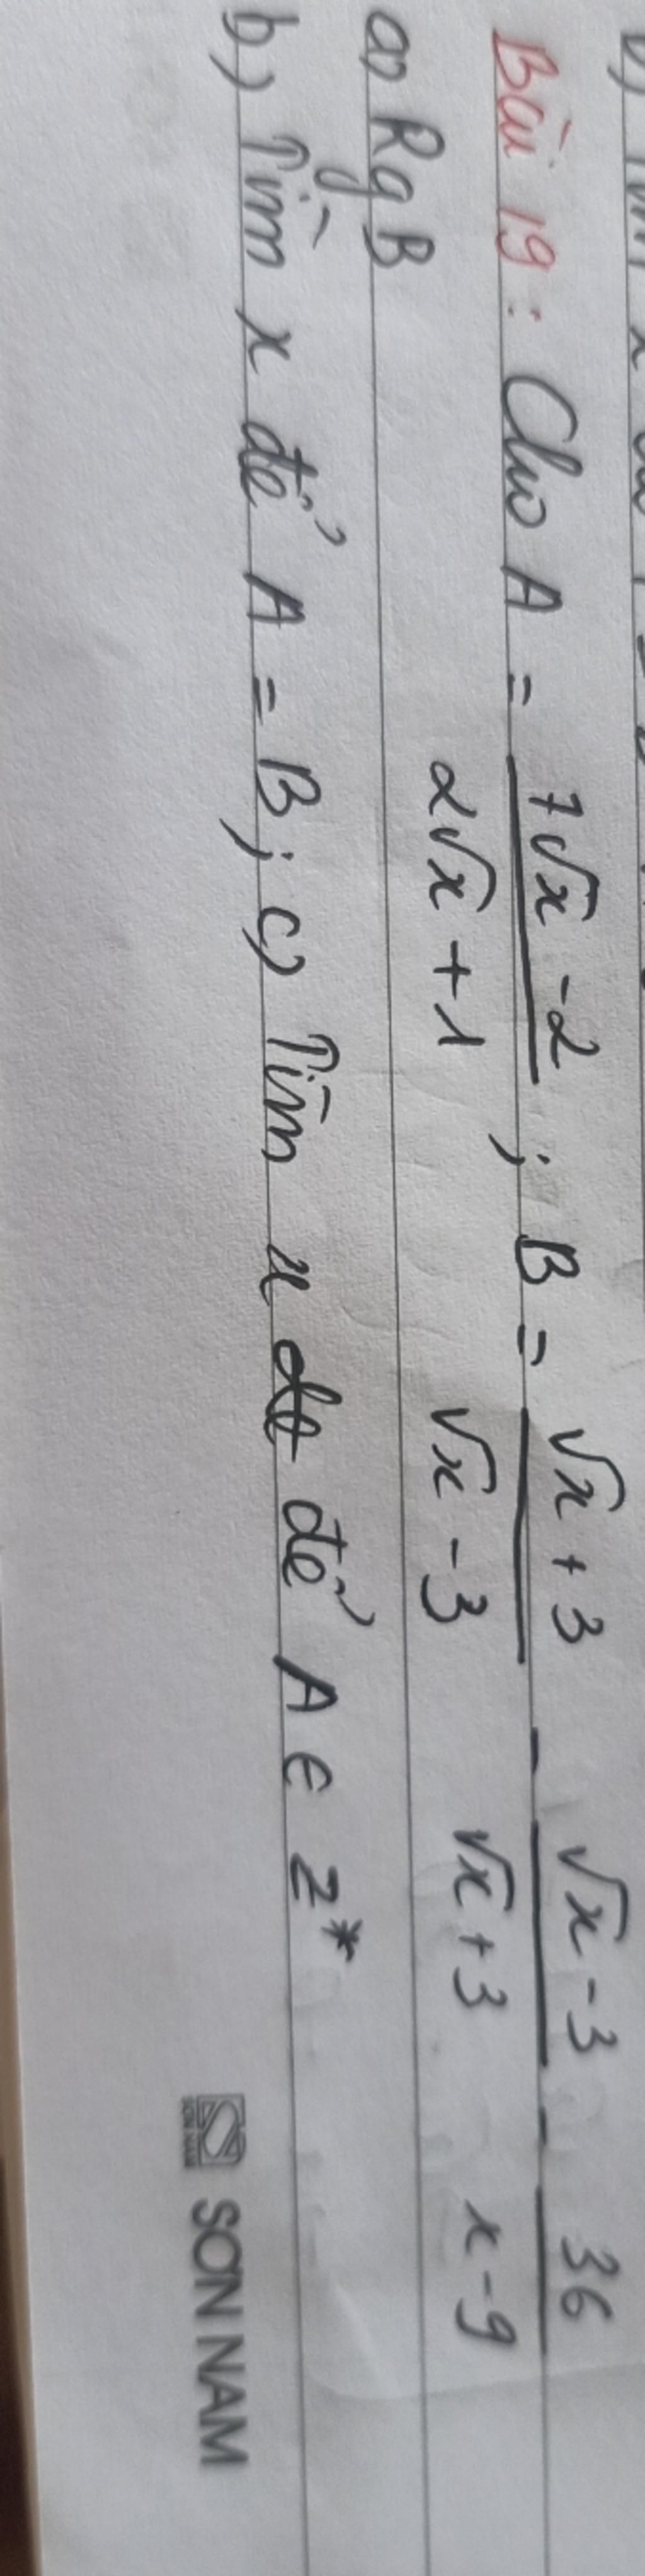 Bài 19: Cho A = (7√x - 2)/(2√x + 1) ; B = (√x + 3)/(√x - 3) - (√x - 3)/(√x + 3) - 36/(x - 9)
a) Rg B
b) Tìm x để A = B; c) Tìm x để A ∈ Z*
SON NAM